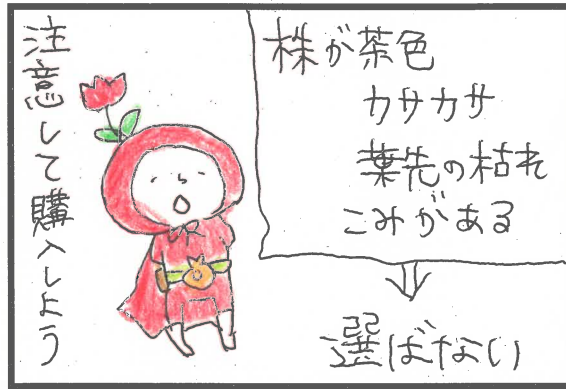 株が茶色
カサカサ
葉先の枯れ
こみがある
選ばない
注意して購入しよう